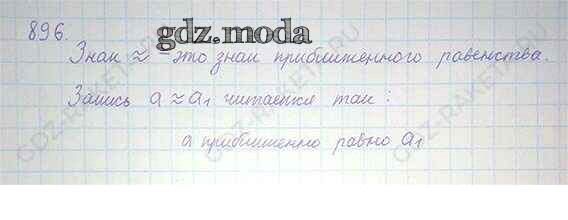 896.
gdz.moda
Знак ≈ – это знак приближенного равенства.
Запись a ≈ a₁ читается так:
a приближенно равно a₁
GDZ-RAKETA.RU
GDZ-RAKETA.RU
GDZ-RAKETA.RU